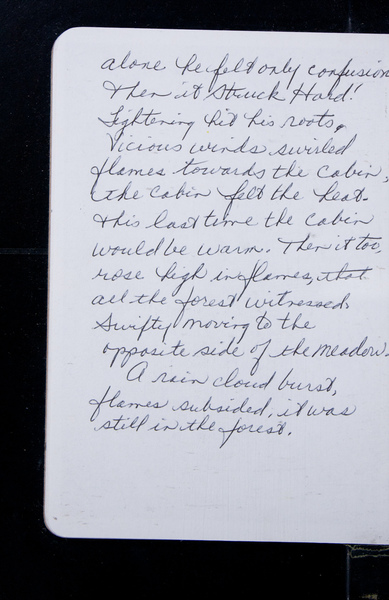 alone he felt only confusion
Then it struck Hard!
Lightening hit his roots,
Vicious winds swirled
flames towards the cabin,
the cabin felt the heat.
this last time the cabin
would be warm. Then it too,
rose high in flames, that
all the forest witnessed.
Swiftly moving to the
opposite side of the meadow.
A rain cloud burst,
flames subsided, it was
still in the forest.